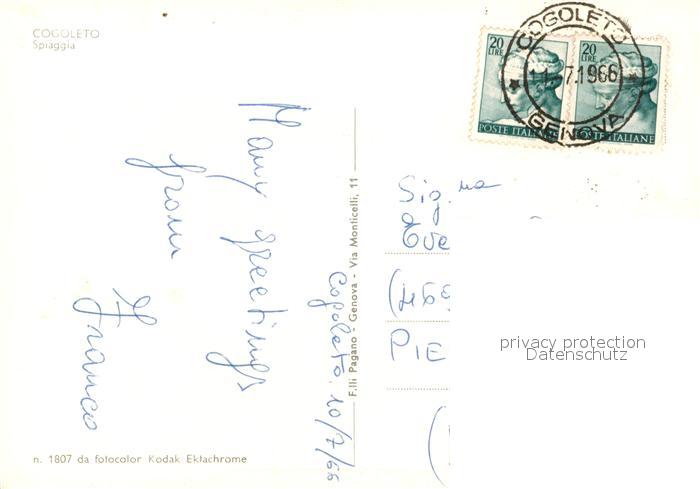 COGOLETO
Spiaggia
20
LIRE
POSTE ITALIANE
20
LIRE
POSTE ITALIANE
COGOLETO
7.1966
GENOVA
Many greetings
from
Franco
Cogoleto 10/7/66
F.lli Pagano - Genova - Via Monticelli, 11
Sig.na
PIE
privacy protection
Datenschutz
n. 1807 da fotocolor Kodak Ektachrome